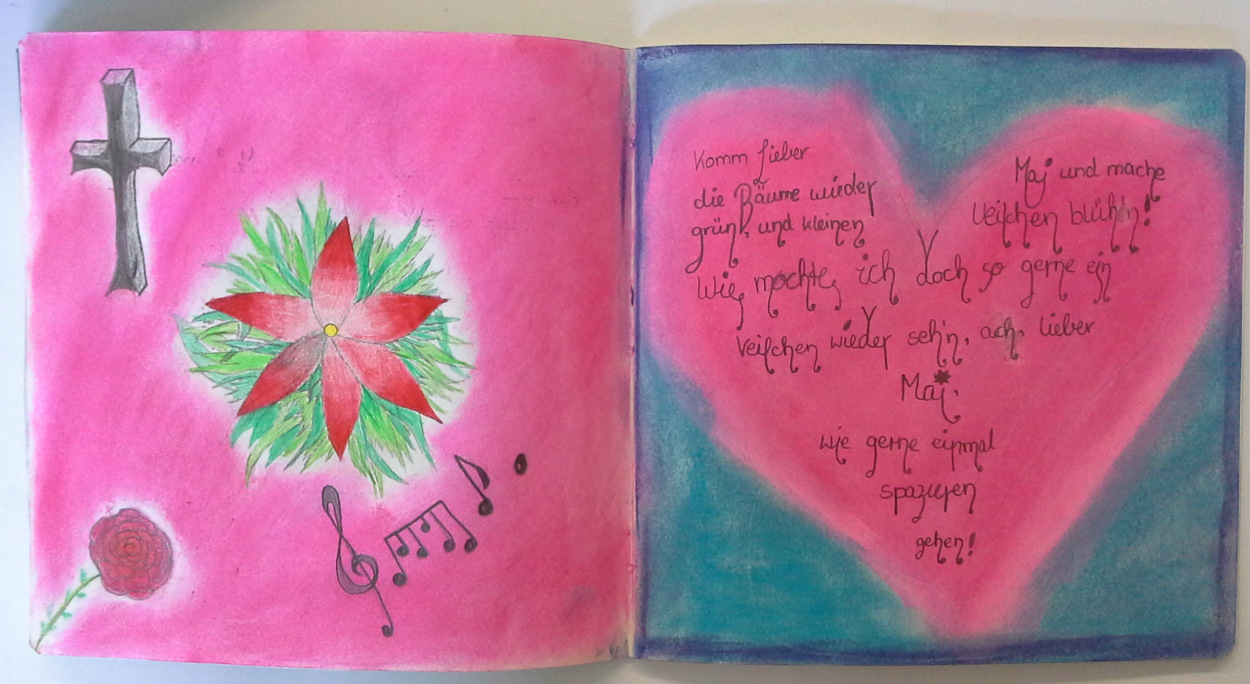 Komm Lieber Maj und mache
die Bäume wieder
grün, und kleinen Veilchen blüh'n!
Wie, mochte, ich doch so gerne ein
Veilchen wieder seh'n, ach, lieber
Maj.
wie gerne einmal
spazieren
gehen!